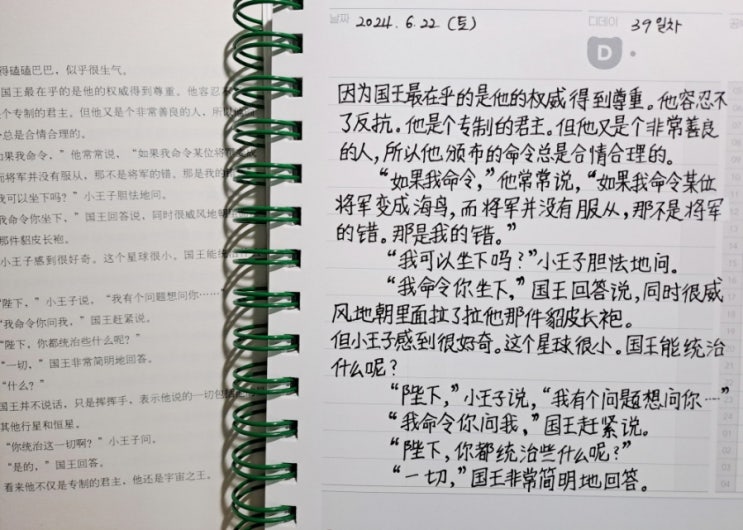 得磕磕巴巴，似乎很生气。
国王最在乎的是他的权威得到尊重。他容忍不
个专制的君主。但他又是个非常善良的人，所以
总是合情合理的。
如果我命令，”他常常说，“如果我命令某位将
而将军并没有服从，那不是将军的错。那是我的
我可以坐下吗？”小王子胆怯地问。
我命令你坐下，”国王回答说，同时很威风地朝
那件貂皮长袍。
小王子感到很好奇。这个星球很小。国王能
“陛下，”小王子说，“我有个问题想问你……”
“我命令你问我，”国王赶紧说。
“陛下，你都统治些什么呢？”
“一切，”国王非常简明地回答。
“什么？”
国王并不说话，只是挥挥手，表示他说的一切包括
其他行星和恒星。
“你统治这一切啊？”小王子问。
“是的，”国王回答。
看来他不仅是专制的君主，他还是宇宙之王。
날짜 2024.6.22 (토)
디데이 39일차
D
因为国王最在乎的是他的权威得到尊重。他容忍不
了反抗。他是个专制的君主。但他又是个非常善良
的人，所以他颁布的命令总是合情合理的。
“如果我命令，”他常常说，“如果我命令某位
将军变成海鸟，而将军并没有服从，那不是将军
的错。那是我的错。”
“我可以坐下吗？”小王子胆怯地问。
“我命令你坐下，”国王回答说，同时很威
风地朝里面拉了拉他那件貂皮长袍。
但小王子感到很好奇。这个星球很小。国王能统治
什么呢？
“陛下，”小王子说，“我有个问题想问你…”
“我命令你问我，”国王赶紧说。
“陛下，你都统治些什么呢？”
“一切，”国王非常简明地回答。